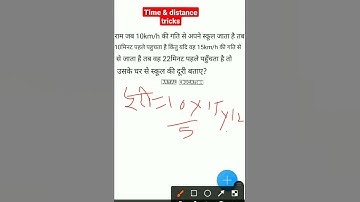 Time & distance
tricks
राम जब 10km/h की गति से अपने स्कूल जाता है तब
10मिनट पहले पहुचता है किंतु यदि वह 15km/h की गति से
से जाता है तब वह 22मिनट पहले पहुँचता है तो
उसके घर से स्कूल की दूरी बताए?
दूरी = 10 x 15 x 12
5